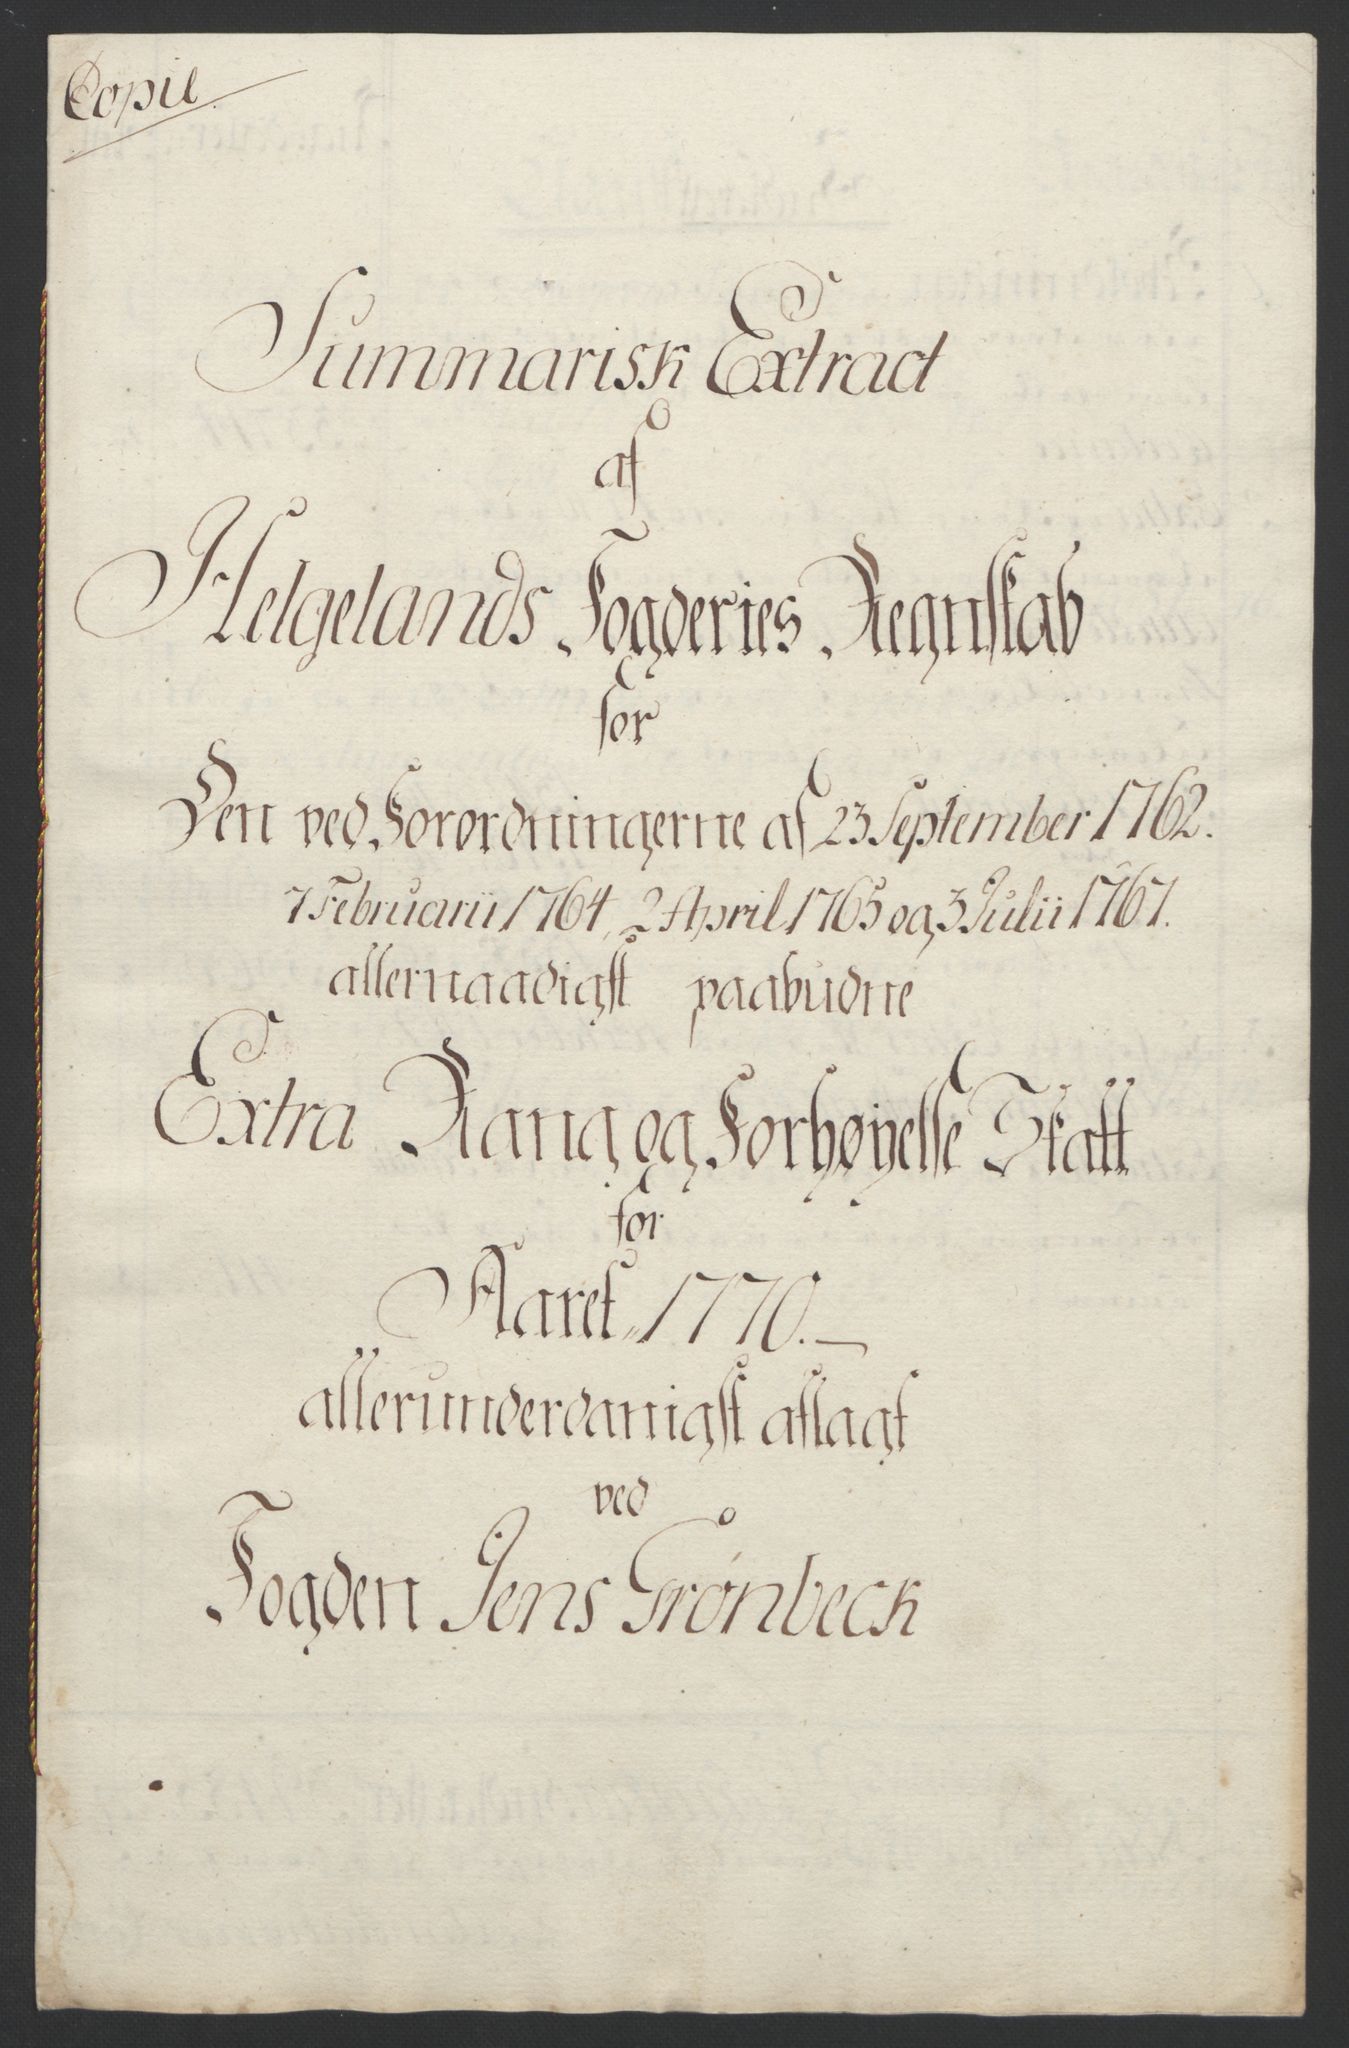 Copie
Summarisk Extract
af
Helgelands Fogderies Regnskab
for
Den ved Forordningerne af 23 September 1762.
7 Februarii 1764, 2 April 1765 og 3 Julii 1767.
allernaadigst paabudne
Extra Rang og Forhøyelse Skatt
for
Aaret 1770.
allerunderdanigst aflagt
ved
Fogden Jens Grønbeck